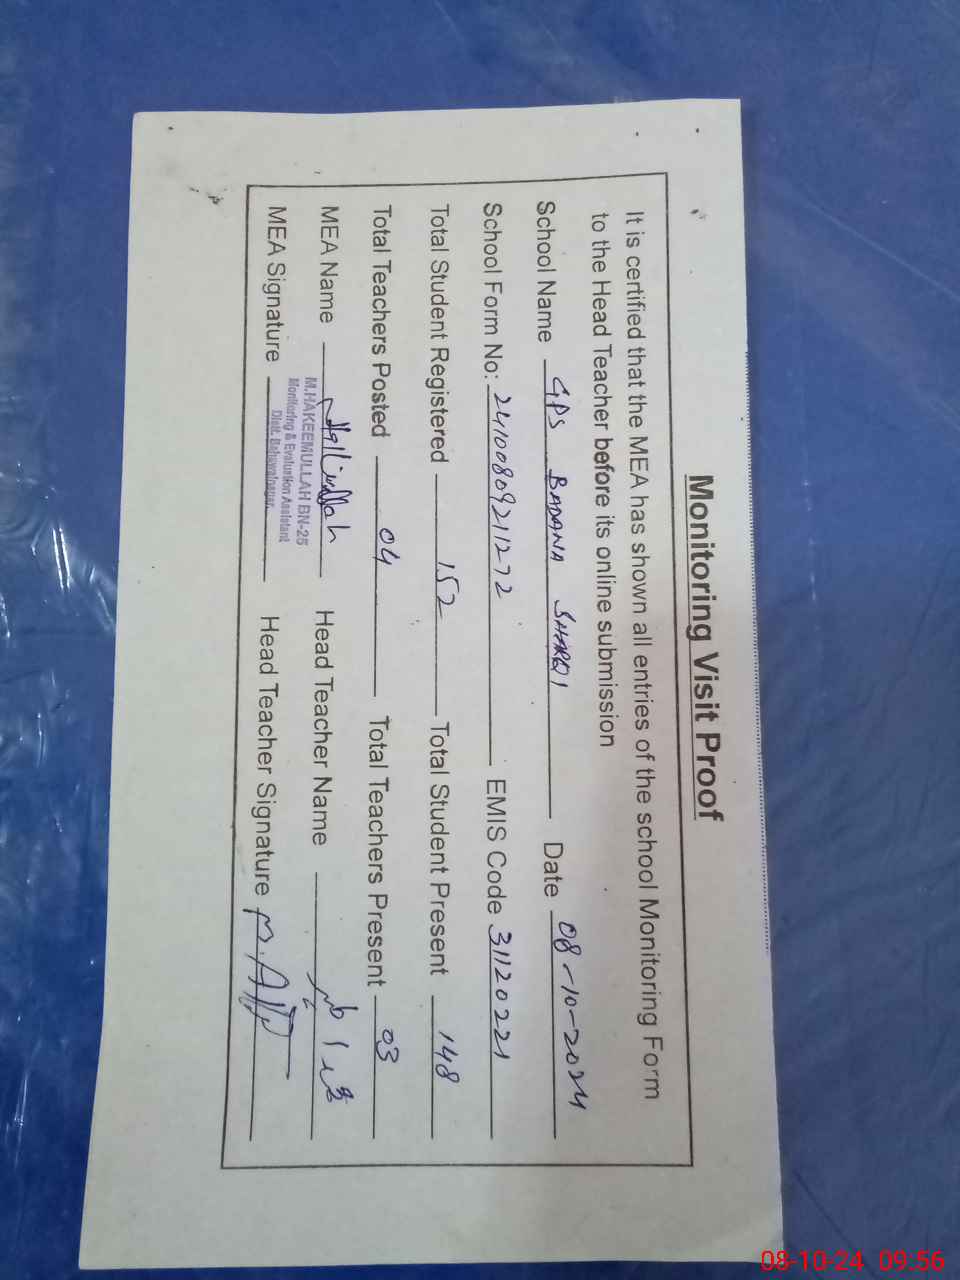 Monitoring Visit Proof
It is certified that the MEA has shown all entries of the school Monitoring Form
to the Head Teacher before its online submission
School Name GPS BADANA SHARQI Date 08-10-2024
School Form No: 24100809211272 EMIS Code 31120221
Total Student Registered 152 Total Student Present 148
Total Teachers Posted 04 Total Teachers Present 03
MEA Name Head Teacher Name
M.HAKEEMULLAH BN-25
Monitoring & Evaluation Assistant
Distt. Bahawalnagar.
MEA Signature Head Teacher Signature
08-10-24 09:56